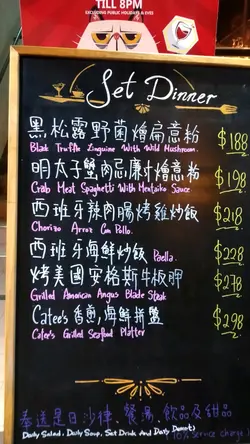 TILL 8PM
EXCLUDING PUBLIC HOLIDAYS & EVES
Set Dinner
黑松露野菌燴扁意粉 $188
Black Truffle Linguine With Wild Mushroom.
明太子蟹肉忌廉汁燴意粉 $198
Crab Meat Spaghetti With Mentaiko Sauce
西班牙辣肉腸烤雞炒飯 $218
Chorizo Arroz Con Pollo.
西班牙海鮮炒飯 Paella. $228
烤美國安格斯牛板腍 $278
Grilled American Angus Blade Steak
Calee's 香煎海鮮拼盤 $298
Calee's Grilled Seafood Platter
奉送是日沙律、餐湯、飲品及甜品
(Daily Salad, Daily Soup, Set Drink And Daily Dessert)